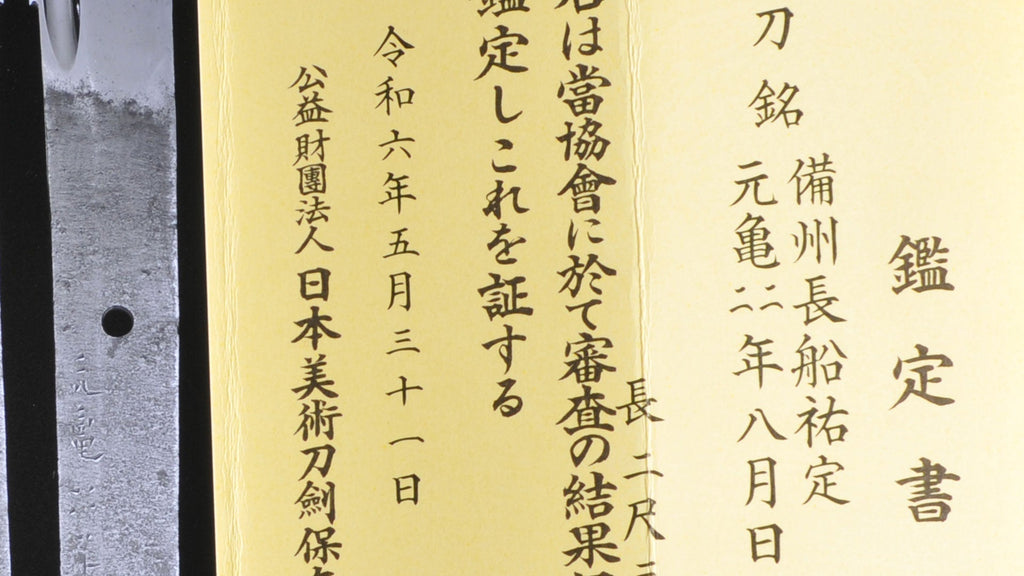 鑑定書
刀 銘
備州長船祐定
元亀二二年八月日
長 二尺
は當協會に於て審査の結果
鑑定しこれを証する
令和六年五月三十一日
公益財團法人 日本美術刀劍保
元亀